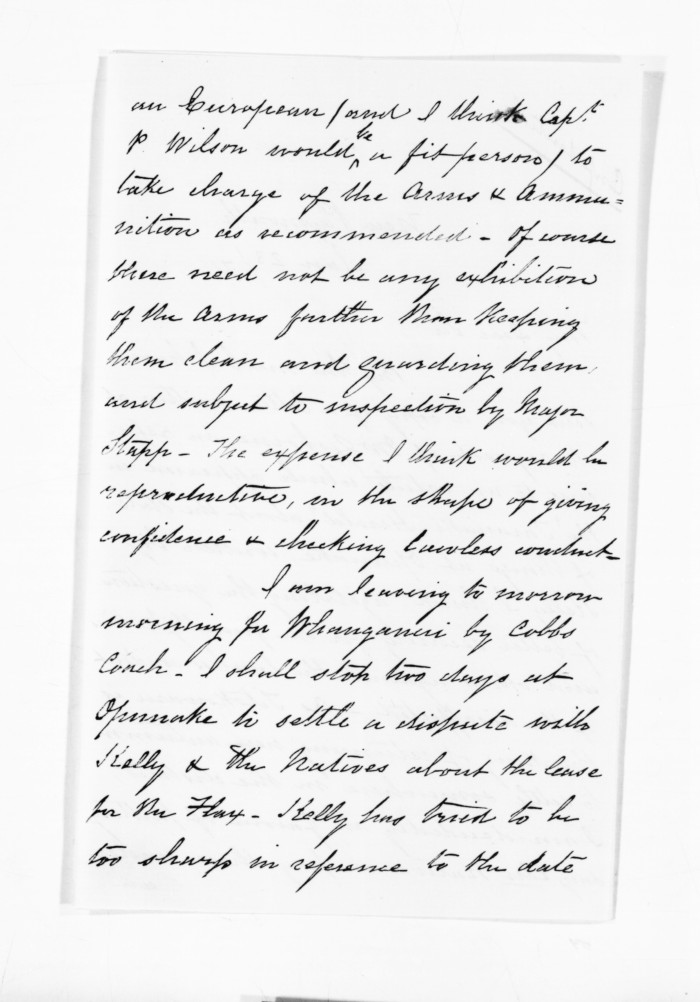 an European (and I think Capt.
P. Wilson would be a fit person) to
take charge of the Arms & Ammu=
nition as recommended - Of course
there need not be any exhibition
of the Arms further than Keeping
them clean and guarding them,
and subject to inspection by Major
Stapp - The expense I think would be
reproductive, in the shape of giving
confidence & checking lawless conduct-
I am leaving to morrow
morning for Whanganui by Cobbs
Coach - I shall stop two days at
Opunake to settle a dispute with
Kelly & the Natives about the lease
for the Flax - Kelly has tried to be
too sharp in reference to the date